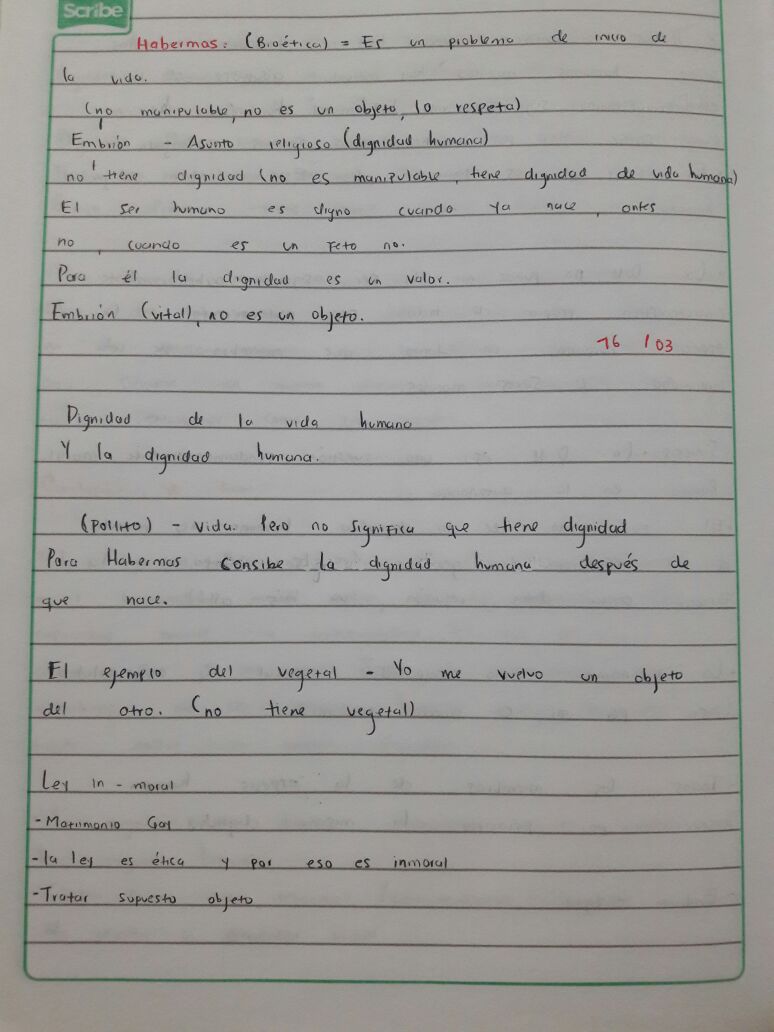 Scribe
Habermas: (Bioética) = Es un problema de inicio de
la vida.
(no manipulable, no es un objeto, lo respeta)
Embrión - Asunto religioso (dignidad humana)
no tiene dignidad (no es manipulable, tiene dignidad de vida humana)
El ser humano es digno cuando ya nace, antes
no, cuando es un feto no.
Para él la dignidad es un valor.
Embrión (vital), no es un objeto.
16 / 03
Dignidad de la vida humana
Y la dignidad humana.
(Pollito) - Vida. Pero no significa que tiene dignidad
Para Habermas consibe la dignidad humana después de
que nace.
El ejemplo del vegetal - Yo me vuelvo un objeto
del otro. (no tiene vegetal)
Ley in - moral
- Matrimonio Gay
- la ley es ética y por eso es inmoral
- Tratar supuesto objeto